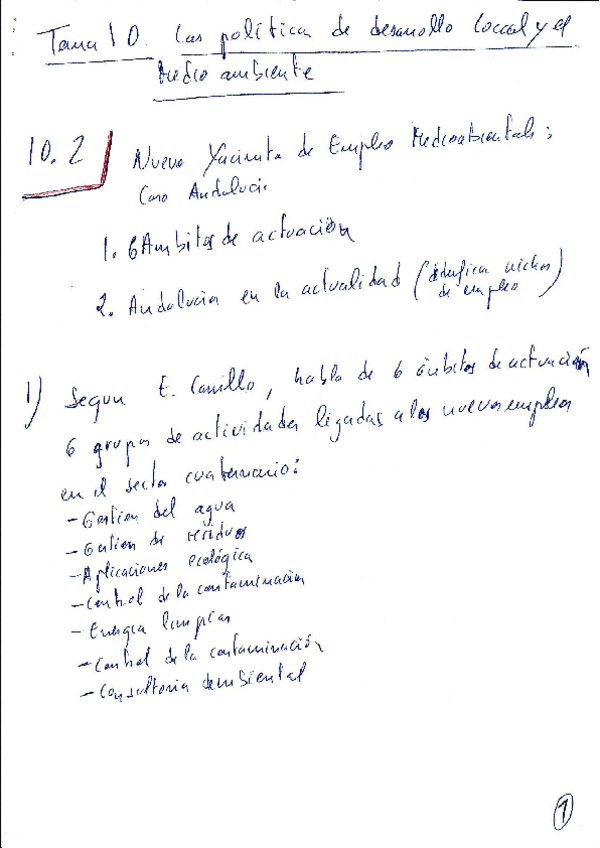 Tema 10. Las política de desarrollo local y el
Medio ambiente
10.2
Nuevo Yacimita de Empleo Medioabientals:
Caso Andalucia
1. 6 Ambitos de actuación
2. Andalucia en la actualidad (idenfica nichos
de empleo)
1) Segun E. Carrillo, habla de 6 ámbitos de actuación
6 grupos de actividades ligadas a los nuevos empleos
en el sector cuaternario:
- Gestion del agua
- Gestion de residuos
- Aplicaciones ecológica
- Control de la contaminación
- Energia limpias
- Control de la contaminación
- Consultoria ambiental
1